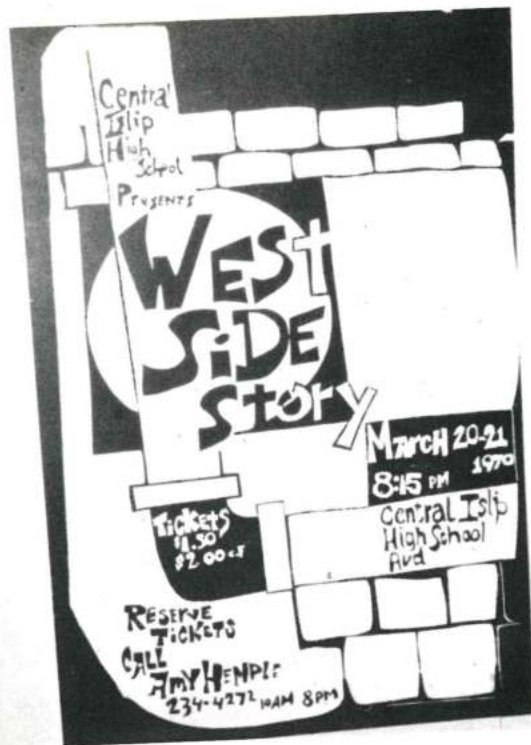 Central
Islip
High
School
Presents
West
Side
Story
March 20-21
1970
8:15 PM
Central Islip
High School
Aud
Tickets
$1.50
$2.00
Reserve
Tickets
Call
Amy Hemple
234-4272 10AM 8PM